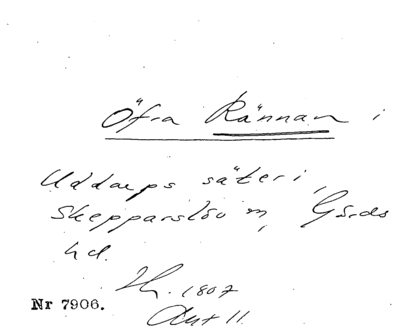 Öfra Rännan i
Uddarps säteri,
Skepparslöv sn, Gärds
hd.
1807
Akt 11.
Nr 7906.